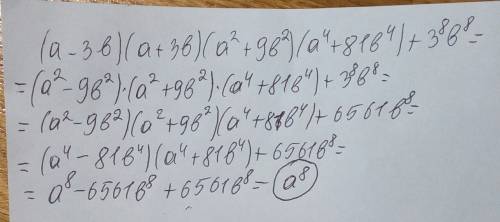 (a-3в)(a+3в)(a²+9в²)(a⁴+81в⁴)+3⁸в⁸=
=(a²-9в²)·(a²+9в²)·(a⁴+81в⁴)+3⁸в⁸=
=(a²-9в²)(a²+9в²)(a⁴+81в⁴)+6561в⁸=
=(a⁴-81в⁴)(a⁴+81в⁴)+6561в⁸=
=a⁸-6561в⁸+6561в⁸=a⁸